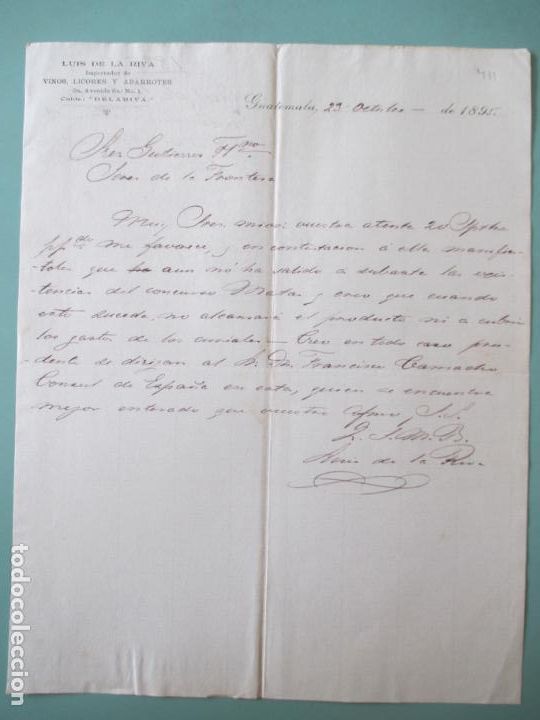 LUIS DE LA RIVA
Importador de
VINOS, LICORES Y ABARROTES
Cable: "DELARIVA."
Guatemala, 23 Octubre — de 1895.
Sres Gutierrez Hnos
Jerez de la Frontera
Muy Sres mios: vuestra atenta 20 Spbre
ppdo me favorece, y en contestacion a ella manifes-
toles que aun no ha salido a subasta las exis-
tencias del concurso Matas y creo que cuando
esto suceda, no alcanzará el producto ni a cubrir
los gastos de los curiales — Creo en todo caso pru-
dente se dirijan al S. Dn Francisco Camacho
Consul de España en esta, quien se encuentra
mejor enterado que vuestro afmo, S.S.
Q. S. M. B.
Luis de la Riva
todocoleccion